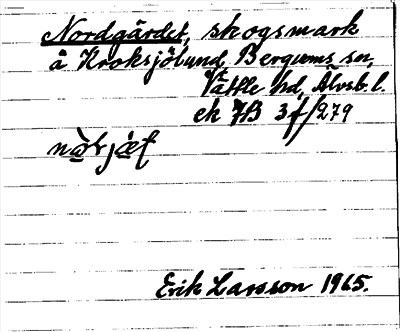 Nordgärdet, skogsmark
å Kroksjölund, Bergums sn,
Vättle hd, Älvsb. l.
ek 7B 3f/279
Erik Larsson 1965.